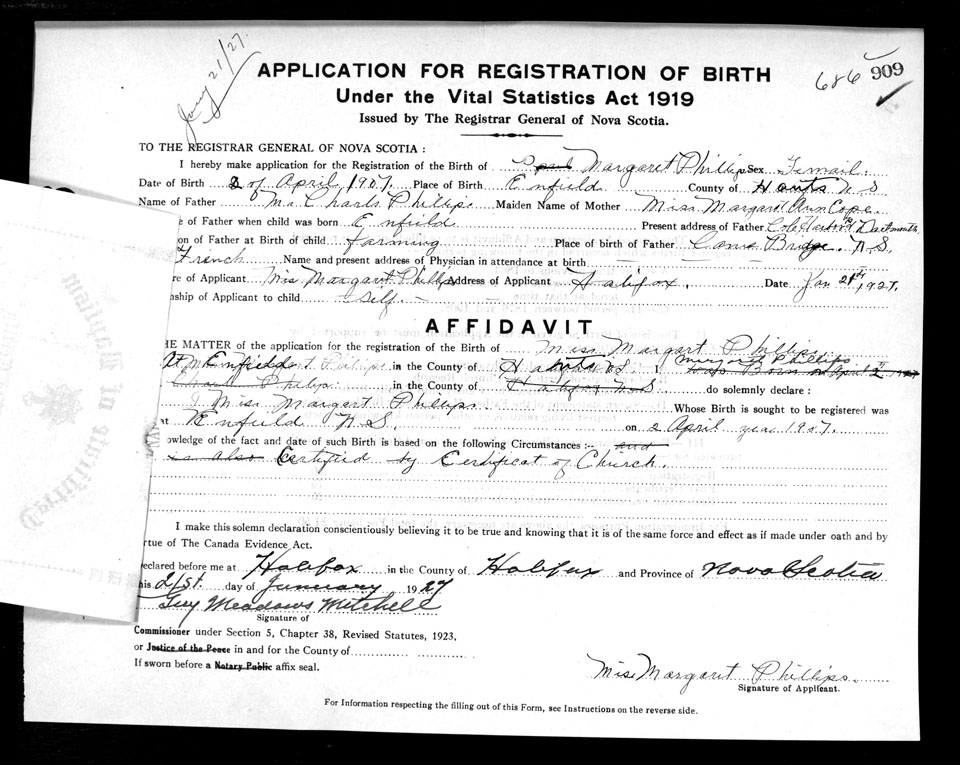 Jany 21/27.
686 909
APPLICATION FOR REGISTRATION OF BIRTH
Under the Vital Statistics Act 1919
Issued by The Registrar General of Nova Scotia.
TO THE REGISTRAR GENERAL OF NOVA SCOTIA :
I hereby make application for the Registration of the Birth of Margaret Phillips Sex Femail
Date of Birth 2 of April, 1907. Place of Birth Enfield County of Hants N S
Name of Father Mr Charls Phillips Maiden Name of Mother Miss Margaret Ann Cope
e of Father when child was born Enfield Present address of Father Cole Harbor Rd Dartmouth
on of Father at Birth of child farming Place of birth of Father Bridge. N.S.
French Name and present address of Physician in attendance at birth
re of Applicant Miss Margaret Phillips Address of Applicant Halifax. Date Jan 21st, 1927.
nship of Applicant to child Self.
AFFIDAVIT
HE MATTER of the application for the registration of the Birth of Miss Margart Phillips
At Enfield in the County of Hants N S I Margaret Phillips was Born on April 2 1907
Charls Philips in the County of Halifax N S do solemnly declare :
I Miss Margart Phillips. Whose Birth is sought to be registered was
at Enfield N.S. on 2 April year 1907.
owledge of the fact and date of such Birth is based on the following Circumstances :- and
is also Certifiid by Certificat of Church.
I make this solemn declaration conscientiously believing it to be true and knowing that it is of the same force and effect as if made under oath and by
rtue of The Canada Evidence Act.
eclared before me at Halifax in the County of Halifax and Province of Nova Scotia
his 21st. day of January 1927
Guy Meadows Mitchell
Signature of
Commissioner under Section 5, Chapter 38, Revised Statutes, 1923,
or Justice of the Peace in and for the County of
If sworn before a Notary Public affix seal.
Miss Margaret Phillips.
Signature of Applicant.
For Information respecting the filling out of this Form, see Instructions on the reverse side.